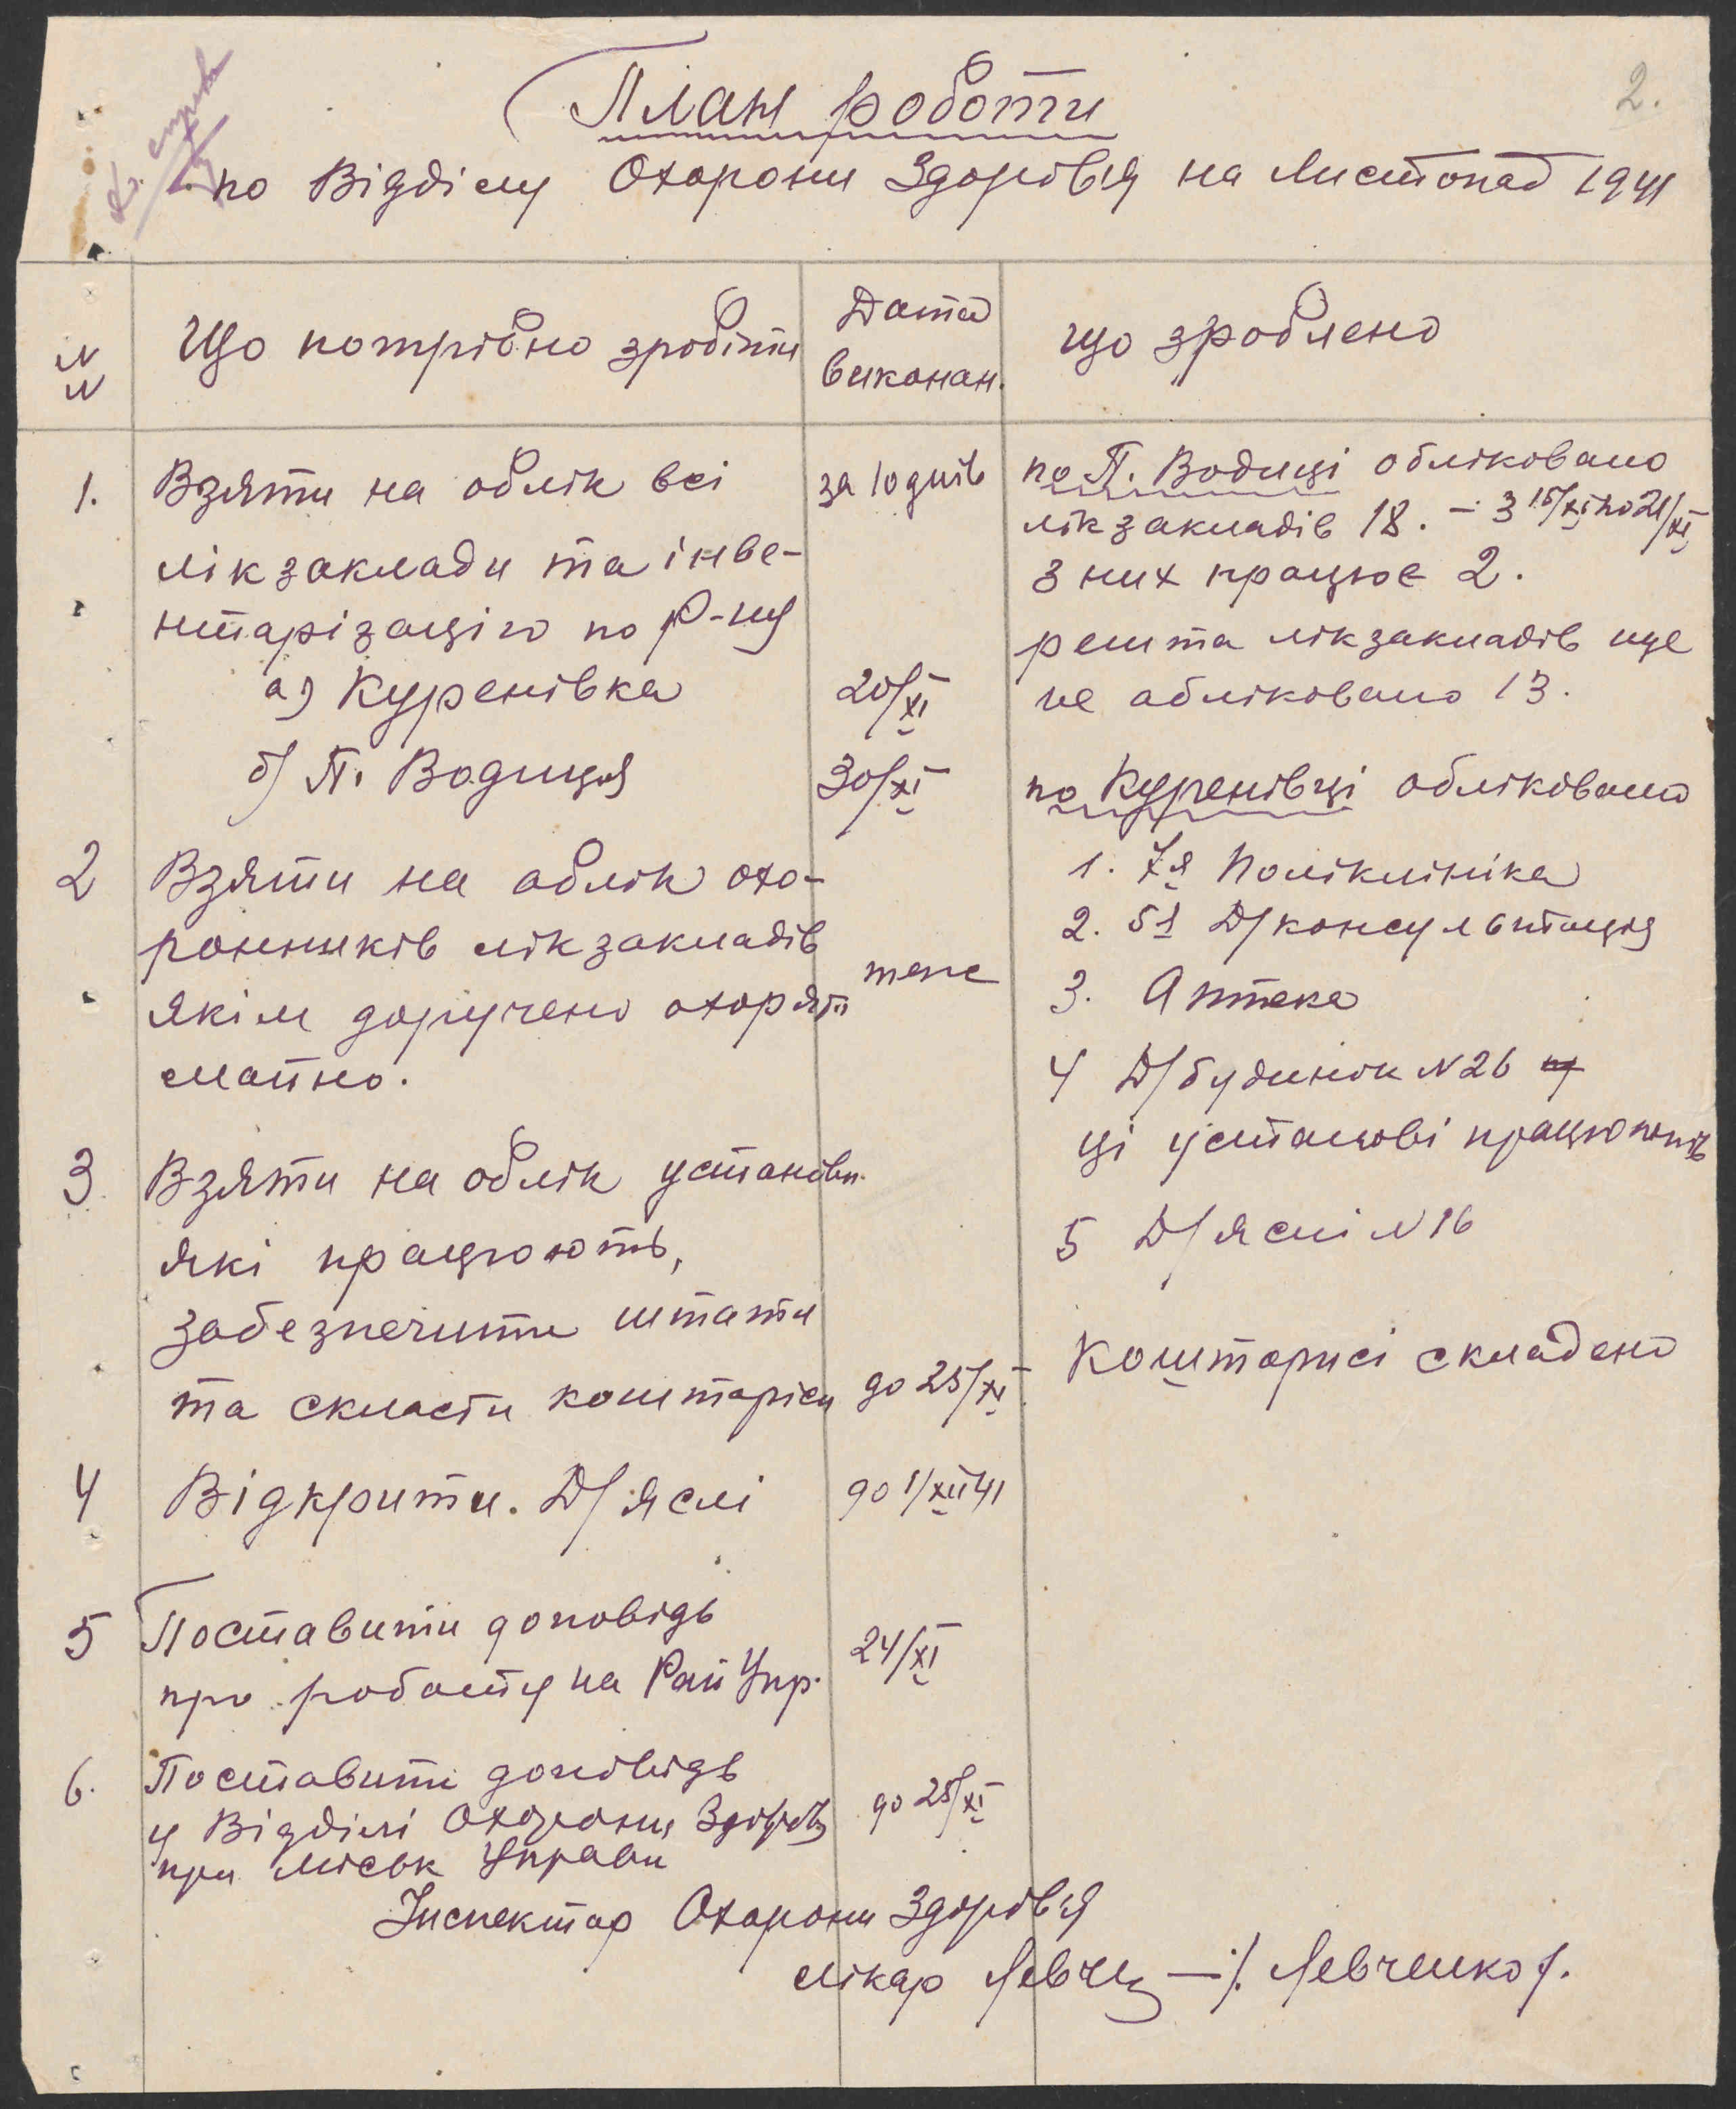 2.
План роботи
по Відділу Охорони Здоровʼя на Листопад 1941
NN
Що потрібно зробіти
Дата
виконан.
що зроблено
1.
Взяти на облік всі
лікзаклади та інве-
нтарізацію по р-ну
а) Куренівка
б) П. Водиця
за 10 днів
20/XI
30/XI
по П. Водиці обліковано
лікзакладів 18. – з 15/XI по 21/XI
з них працює 2.
решта лікзакладів ще
не обліковано 13.
по Куренівці обліковано
1. 7я Поліклініка
2. 5я Д/консультація
3. Аптека
4 Д/будинок N 26
ці установі працюють
5 Д/ясні N 16
2
Взяти на облік охо-
ронників лікзакладів
якім доручено охорят
майно.
теж
3
Взяти на облік установи
які працюють,
забезпечити штати
та скласти коштаріси
до 25/XI
Коштарисі складено
4
Відкрити. Д/яслі
до 1/XII 41
5
Поставити доповідь
про роботу на РайУпр.
24/XI
6.
Поставити доповідь
у Відділі Охорони Здоровʼя
при Міськ Управи
до 25/XI
Інспектор Охорони Здоровʼя
лікар Левчен —/. Левченко/.